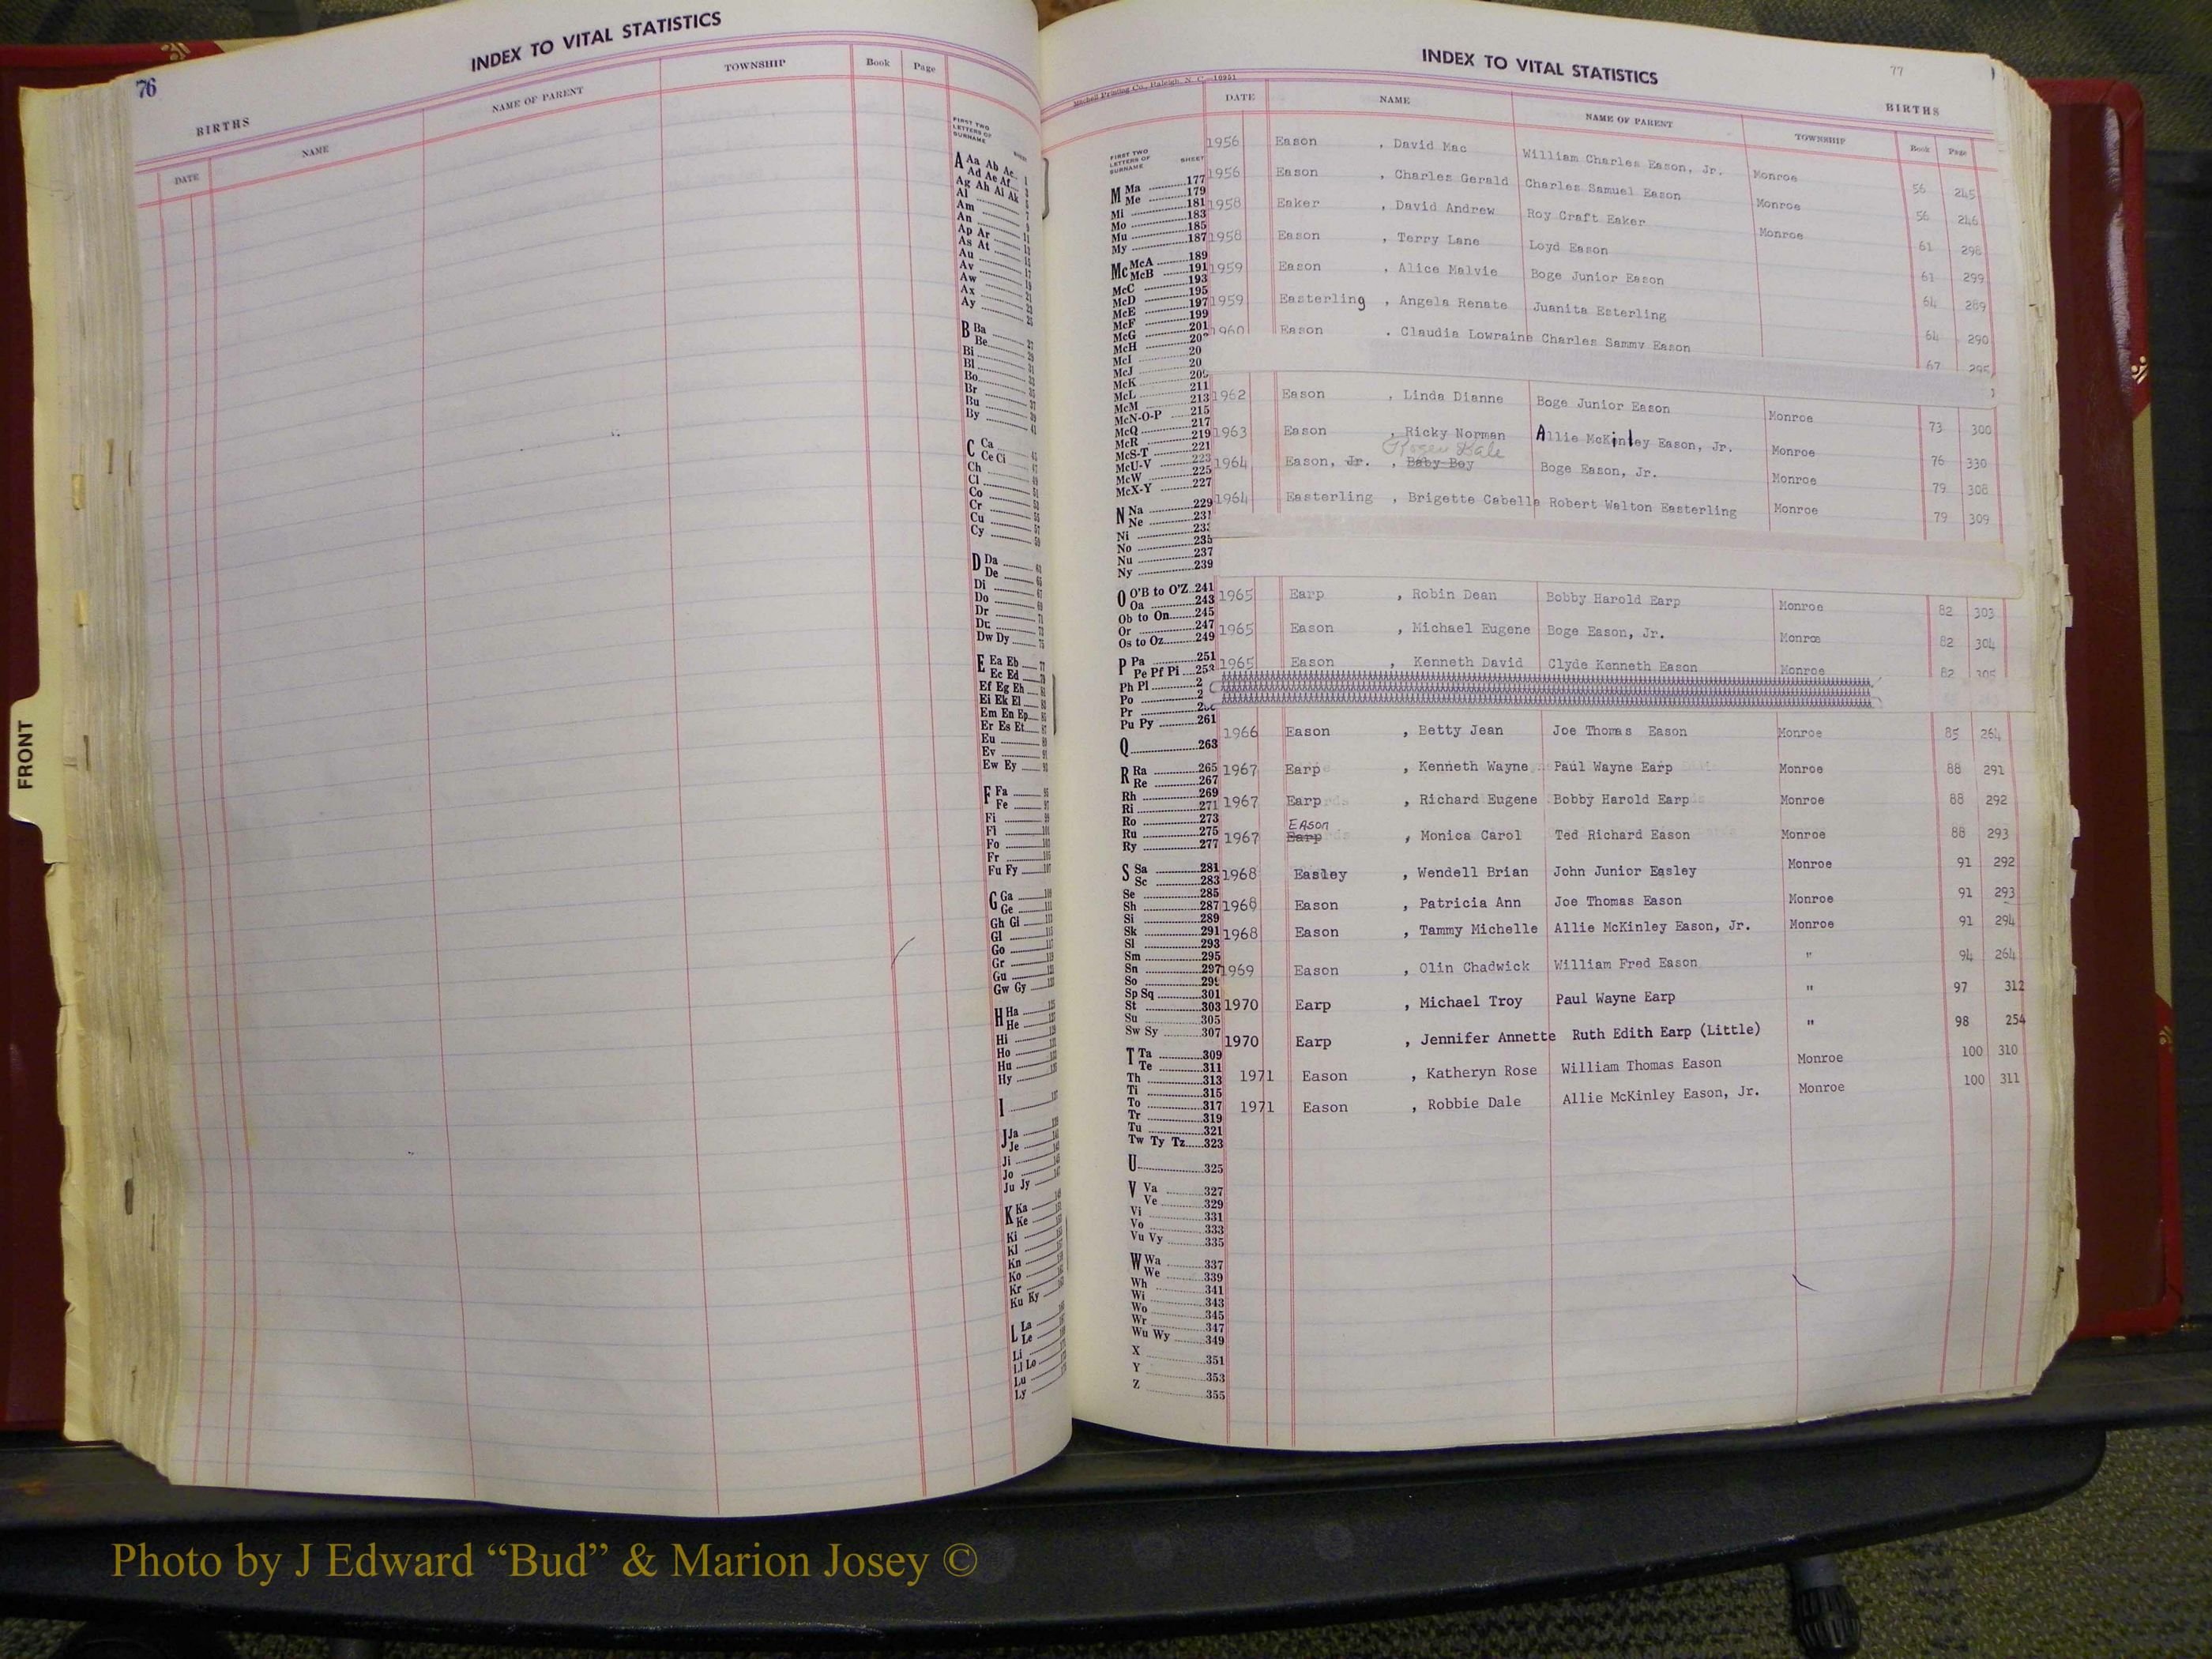 76
INDEX TO VITAL STATISTICS
BIRTHS
DATE NAME NAME OF PARENT TOWNSHIP Book Page
FIRST TWO LETTERS OF SURNAME SHEET
A Aa Ab Ac
Ad Ae Af
Ag Ah Ai Ak
Al
Am
An
Ap Ar
As At
Au
Av
Aw
Ax
Ay
B Ba
Be
Bi
Bl
Bo
Br
Bu
By
C Ca
Ce Ci
Ch
Cl
Co
Cr
Cu
Cy
D Da
De
Di
Do
Dr
Du
Dw Dy
E Ea Eb
Ec Ed
Ef Eg Eh
Ei Ek El
Em En Ep
Er Es Et
Eu
Ev
Ew Ey
F Fa
Fe
Fi
Fl
Fo
Fr
Fu Fy
G Ga
Ge
Gh Gi
Gl
Go
Gr
Gu
Gw Gy
H Ha
He
Hi
Ho
Hu
Hy
I
J Ja
Je
Ji
Jo
Ju Jy
K Ka
Ke
Ki
Kl
Kn
Ko
Kr
Ku Ky
L La
Le
Li
Ll Lo
Lu
Ly
FRONT
INDEX TO VITAL STATISTICS
77
Mitchell Printing Co., Raleigh, N. C.—10951
BIRTHS
DATE NAME NAME OF PARENT TOWNSHIP Book Page
FIRST TWO LETTERS OF SURNAME SHEET
M Ma 177
Me 179
Mi 181
Mo 183
Mu 185
My 187
Mc McA 189
McB 191
McC 193
McD 195
McE 197
McF 199
McG 201
McH 20
McI 20
McJ 20
McK 209
McL 211
McM 213
McN-O-P 215
McQ 217
McR 219
McS-T 221
McU-V 223
McW 225
McX-Y 227
N Na 229
Ne 231
Ni 233
No 235
Nu 237
Ny 239
O O'B to O'Z 241
Oa 243
Ob to On 245
Or 247
Os to Oz 249
P Pa 251
Pe Pf Pi 253
Ph Pl 2
Po 2
Pr
Pu Py 261
Q 263
R Ra 265
Re 267
Rh 269
Ri 271
Ro 273
Ru 275
Ry 277
S Sa 281
Sc 283
Se 285
Sh 287
Si 289
Sk 291
Sl 293
Sm 295
Sn 297
So 299
Sp Sq 301
St 303
Su 305
Sw Sy 307
T Ta 309
Te 311
Th 313
Ti 315
To 317
Tr 319
Tu 321
Tw Ty Tz 323
U 325
V Va 327
Ve 329
Vi 331
Vo 333
Vu Vy 335
W Wa 337
We 339
Wh 341
Wi 343
Wo 345
Wr 347
Wu Wy 349
X 351
Y 353
Z 355
1956 Eason , David Mac William Charles Eason, Jr. Monroe 56 245
1956 Eason , Charles Gerald Charles Samuel Eason Monroe 56 246
1958 Eaker , David Andrew Roy Craft Eaker Monroe 61 298
1958 Eason , Terry Lane Loyd Eason 61 299
1959 Eason , Alice Malvie Boge Junior Eason 64 289
1959 Easterling , Angela Renate Juanita Esterling 64 290
1960 Eason , Claudia Lowraine Charles Sammy Eason 67 295
1962 Eason , Linda Dianne Boge Junior Eason Monroe 73 300
1963 Eason , Ricky Norman Allie McKinley Eason, Jr. Monroe 76 330
Roger Dale
1964 Eason, Jr. , Baby Boy Boge Eason, Jr. Monroe 79 308
1964 Easterling , Brigette Cabelle Robert Walton Easterling Monroe 79 309
1965 Earp , Robin Dean Bobby Harold Earp Monroe 82 303
1965 Eason , Michael Eugene Boge Eason, Jr. Monroe 82 304
1965 Eason , Kenneth David Clyde Kenneth Eason Monroe 82 305
1966 Eason , Betty Jean Joe Thomas Eason Monroe 85 264
1967 Earp , Kenneth Wayne Paul Wayne Earp Monroe 88 291
1967 Earp , Richard Eugene Bobby Harold Earp Monroe 88 292
EAson
1967 Earp , Monica Carol Ted Richard Eason Monroe 88 293
1968 Easley , Wendell Brian John Junior Easley Monroe 91 292
1968 Eason , Patricia Ann Joe Thomas Eason Monroe 91 293
1968 Eason , Tammy Michelle Allie McKinley Eason, Jr. Monroe 91 294
1969 Eason , Olin Chadwick William Fred Eason " 94 264
1970 Earp , Michael Troy Paul Wayne Earp " 97 312
1970 Earp , Jennifer Annette Ruth Edith Earp (Little) " 98 254
1971 Eason , Katheryn Rose William Thomas Eason Monroe 100 310
1971 Eason , Robbie Dale Allie McKinley Eason, Jr. Monroe 100 311
Photo by J Edward “Bud” & Marion Josey ©